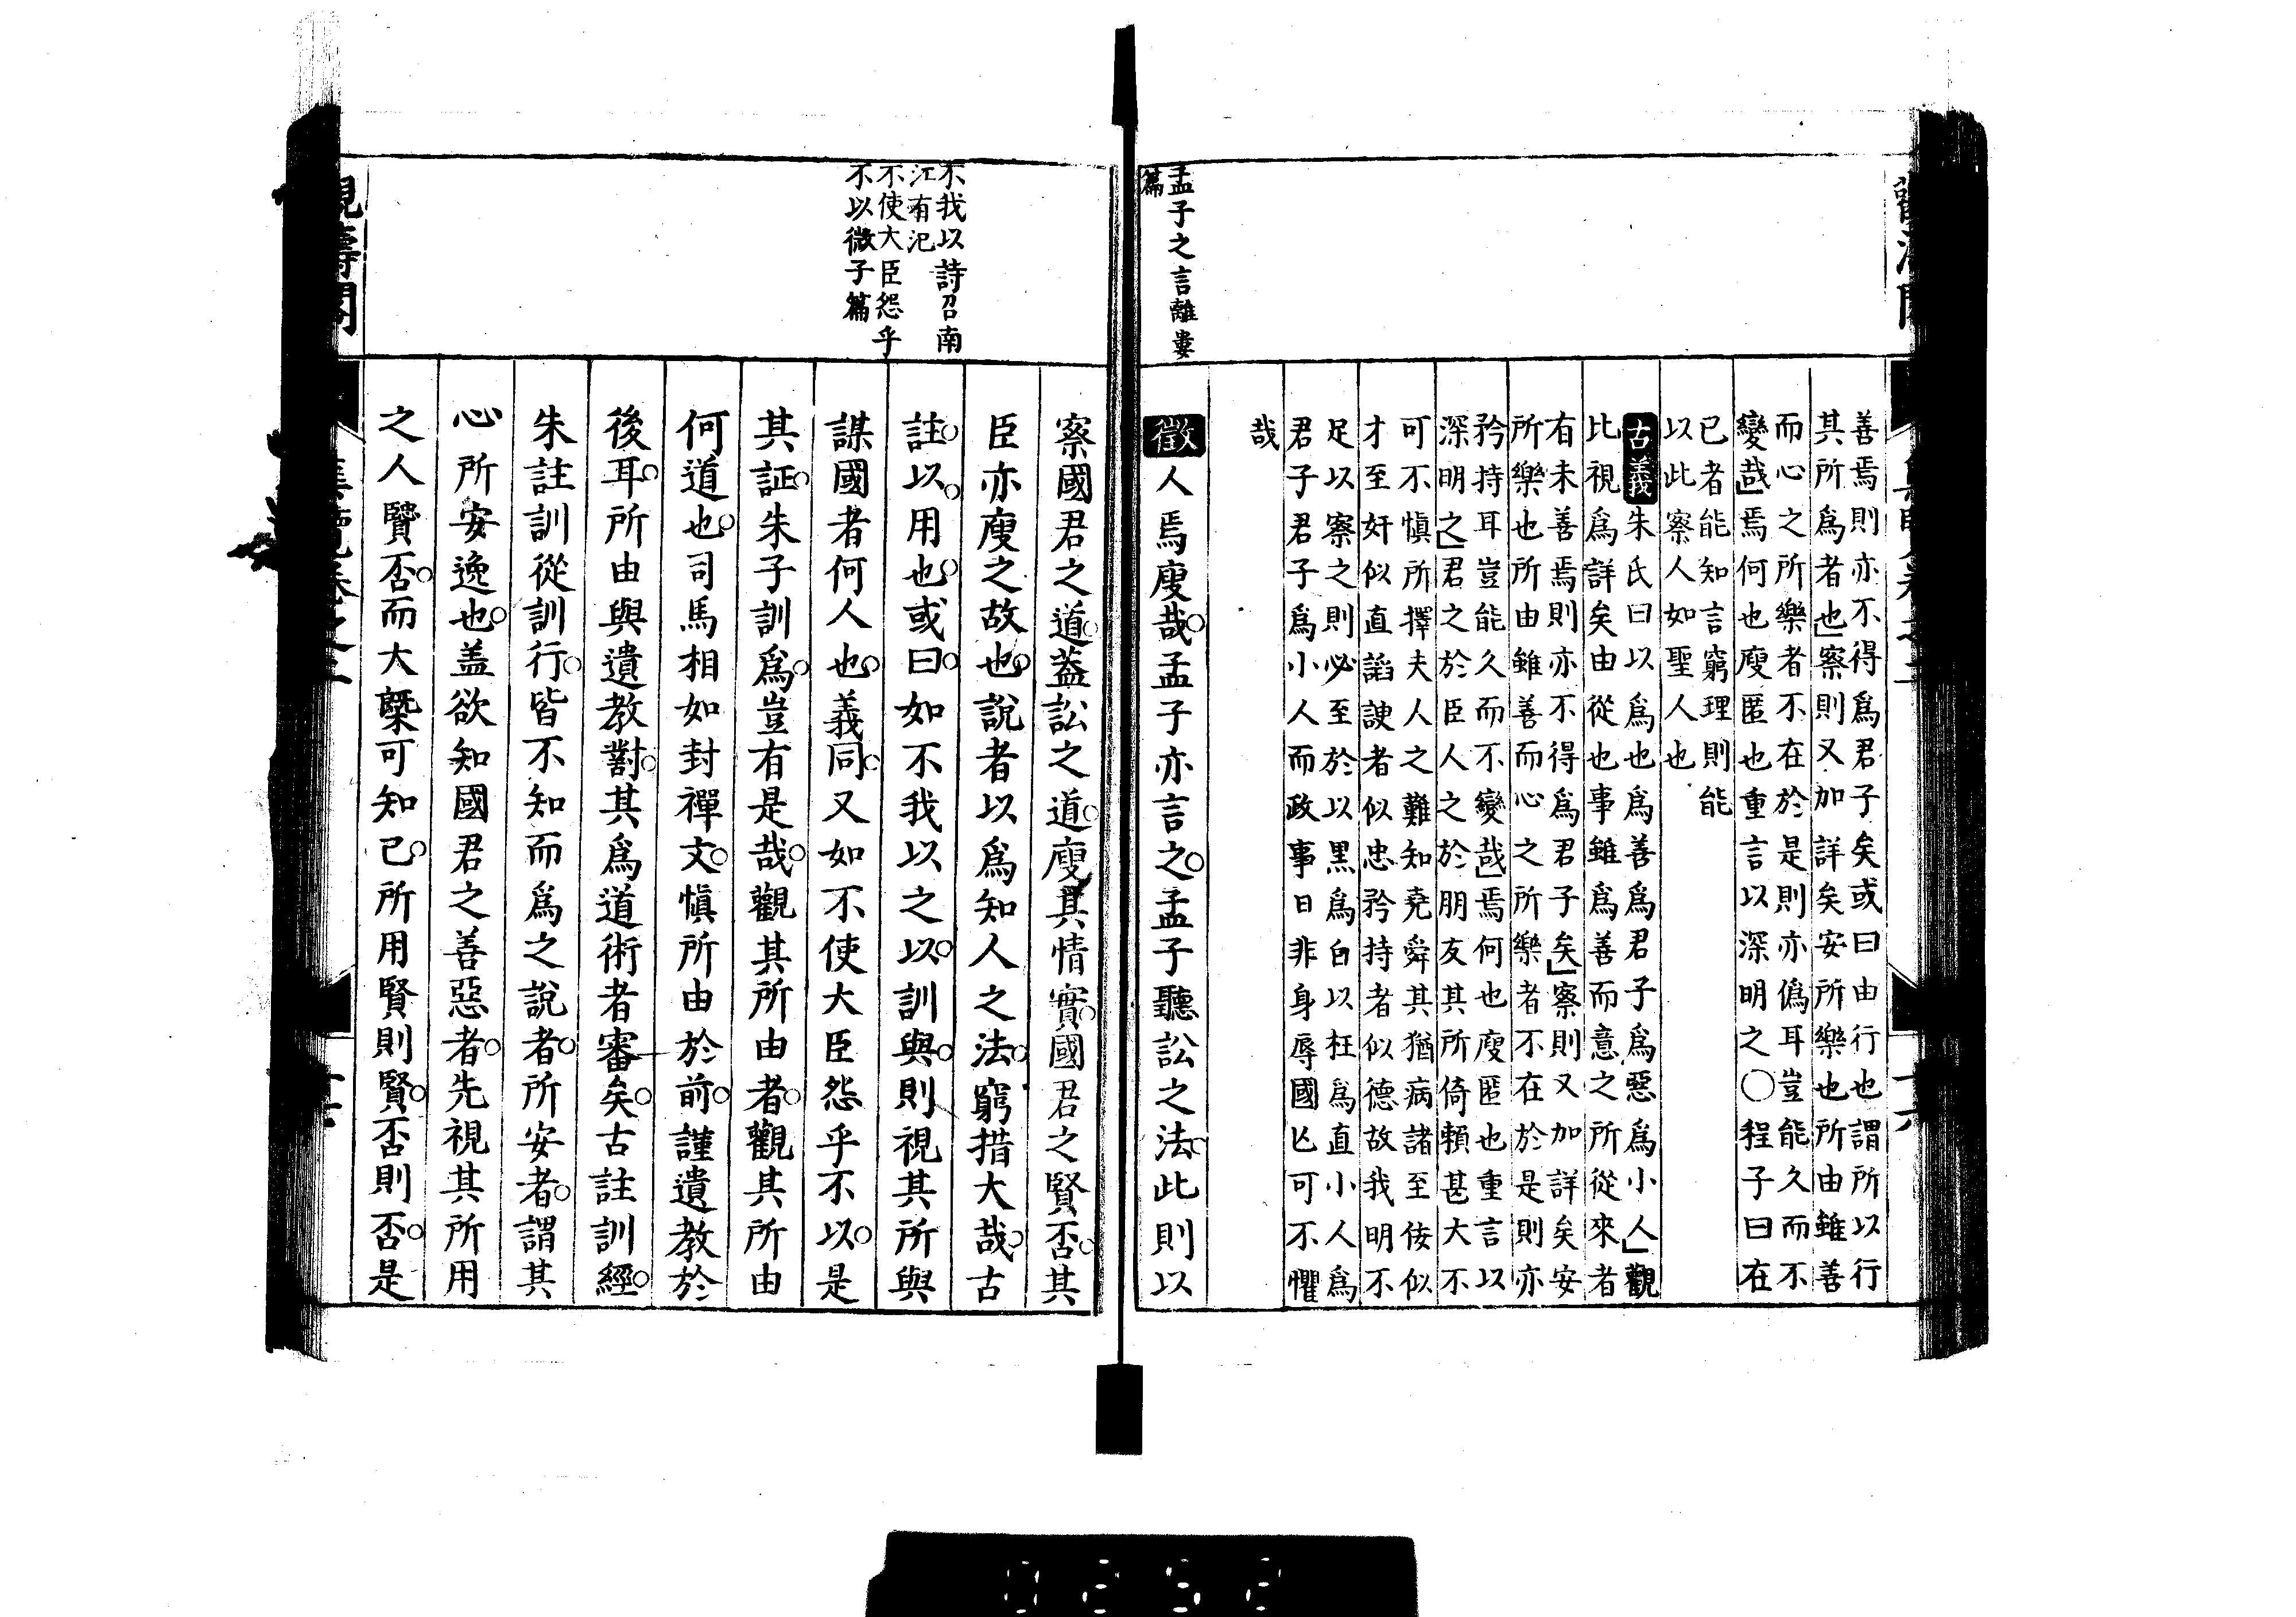 善焉則亦不得爲君子矣或曰由行也謂所以行
其所爲者也察則又加詳矣安所樂也所由雖善
而心之所樂者不在於是則亦僞耳豈能久而不
變哉焉何也廋匿也重言以深明之○程子曰在
已者能知言窮理則能
以此察人如聖人也
古義朱氏曰以爲也爲善爲君子爲惡爲小人觀
比視爲詳矣由從也事雖爲善而意之所從來者
有未善焉則亦不得爲君子矣察則又加詳矣安
所樂也所由雖善而心之所樂者不在於是則亦
矜持耳豈能久而不變哉焉何也廋匿也重言以
深明之君之於臣人之於朋友其所倚賴甚大不
可不愼所擇夫人之難知堯舜其猶病諸至佞似
才至奸似直諂諛者似忠矜持者似德故我明不
足以察之則必至於以黑爲白以枉爲直小人爲
君子君子爲小人而政事日非身辱國亡可不懼
哉
孟子之言離婁
篇
徵人焉廋哉孟子亦言之孟子聽訟之法此則以
察國君之道蓋訟之道廋其情實國君之賢否其
臣亦廋之故也說者以爲知人之法窮措大哉古
不我以詩召南
江有汜
不使大臣怨乎
不以微子篇
註以用也或曰如不我以之以訓與則視其所與
謀國者何人也義同又如不使大臣怨乎不以是
其証朱子訓爲豈有是哉觀其所由者觀其所由
何道也司馬相如封禪文愼所由於前謹遺教於
後耳所由與遺教對其爲道術者審矣古註訓經
朱註訓從訓行皆不知而爲之說者所安者謂其
心所安逸也盖欲知國君之善惡者先視其所用
之人賢否而大槩可知已所用賢則賢否則否是
0252